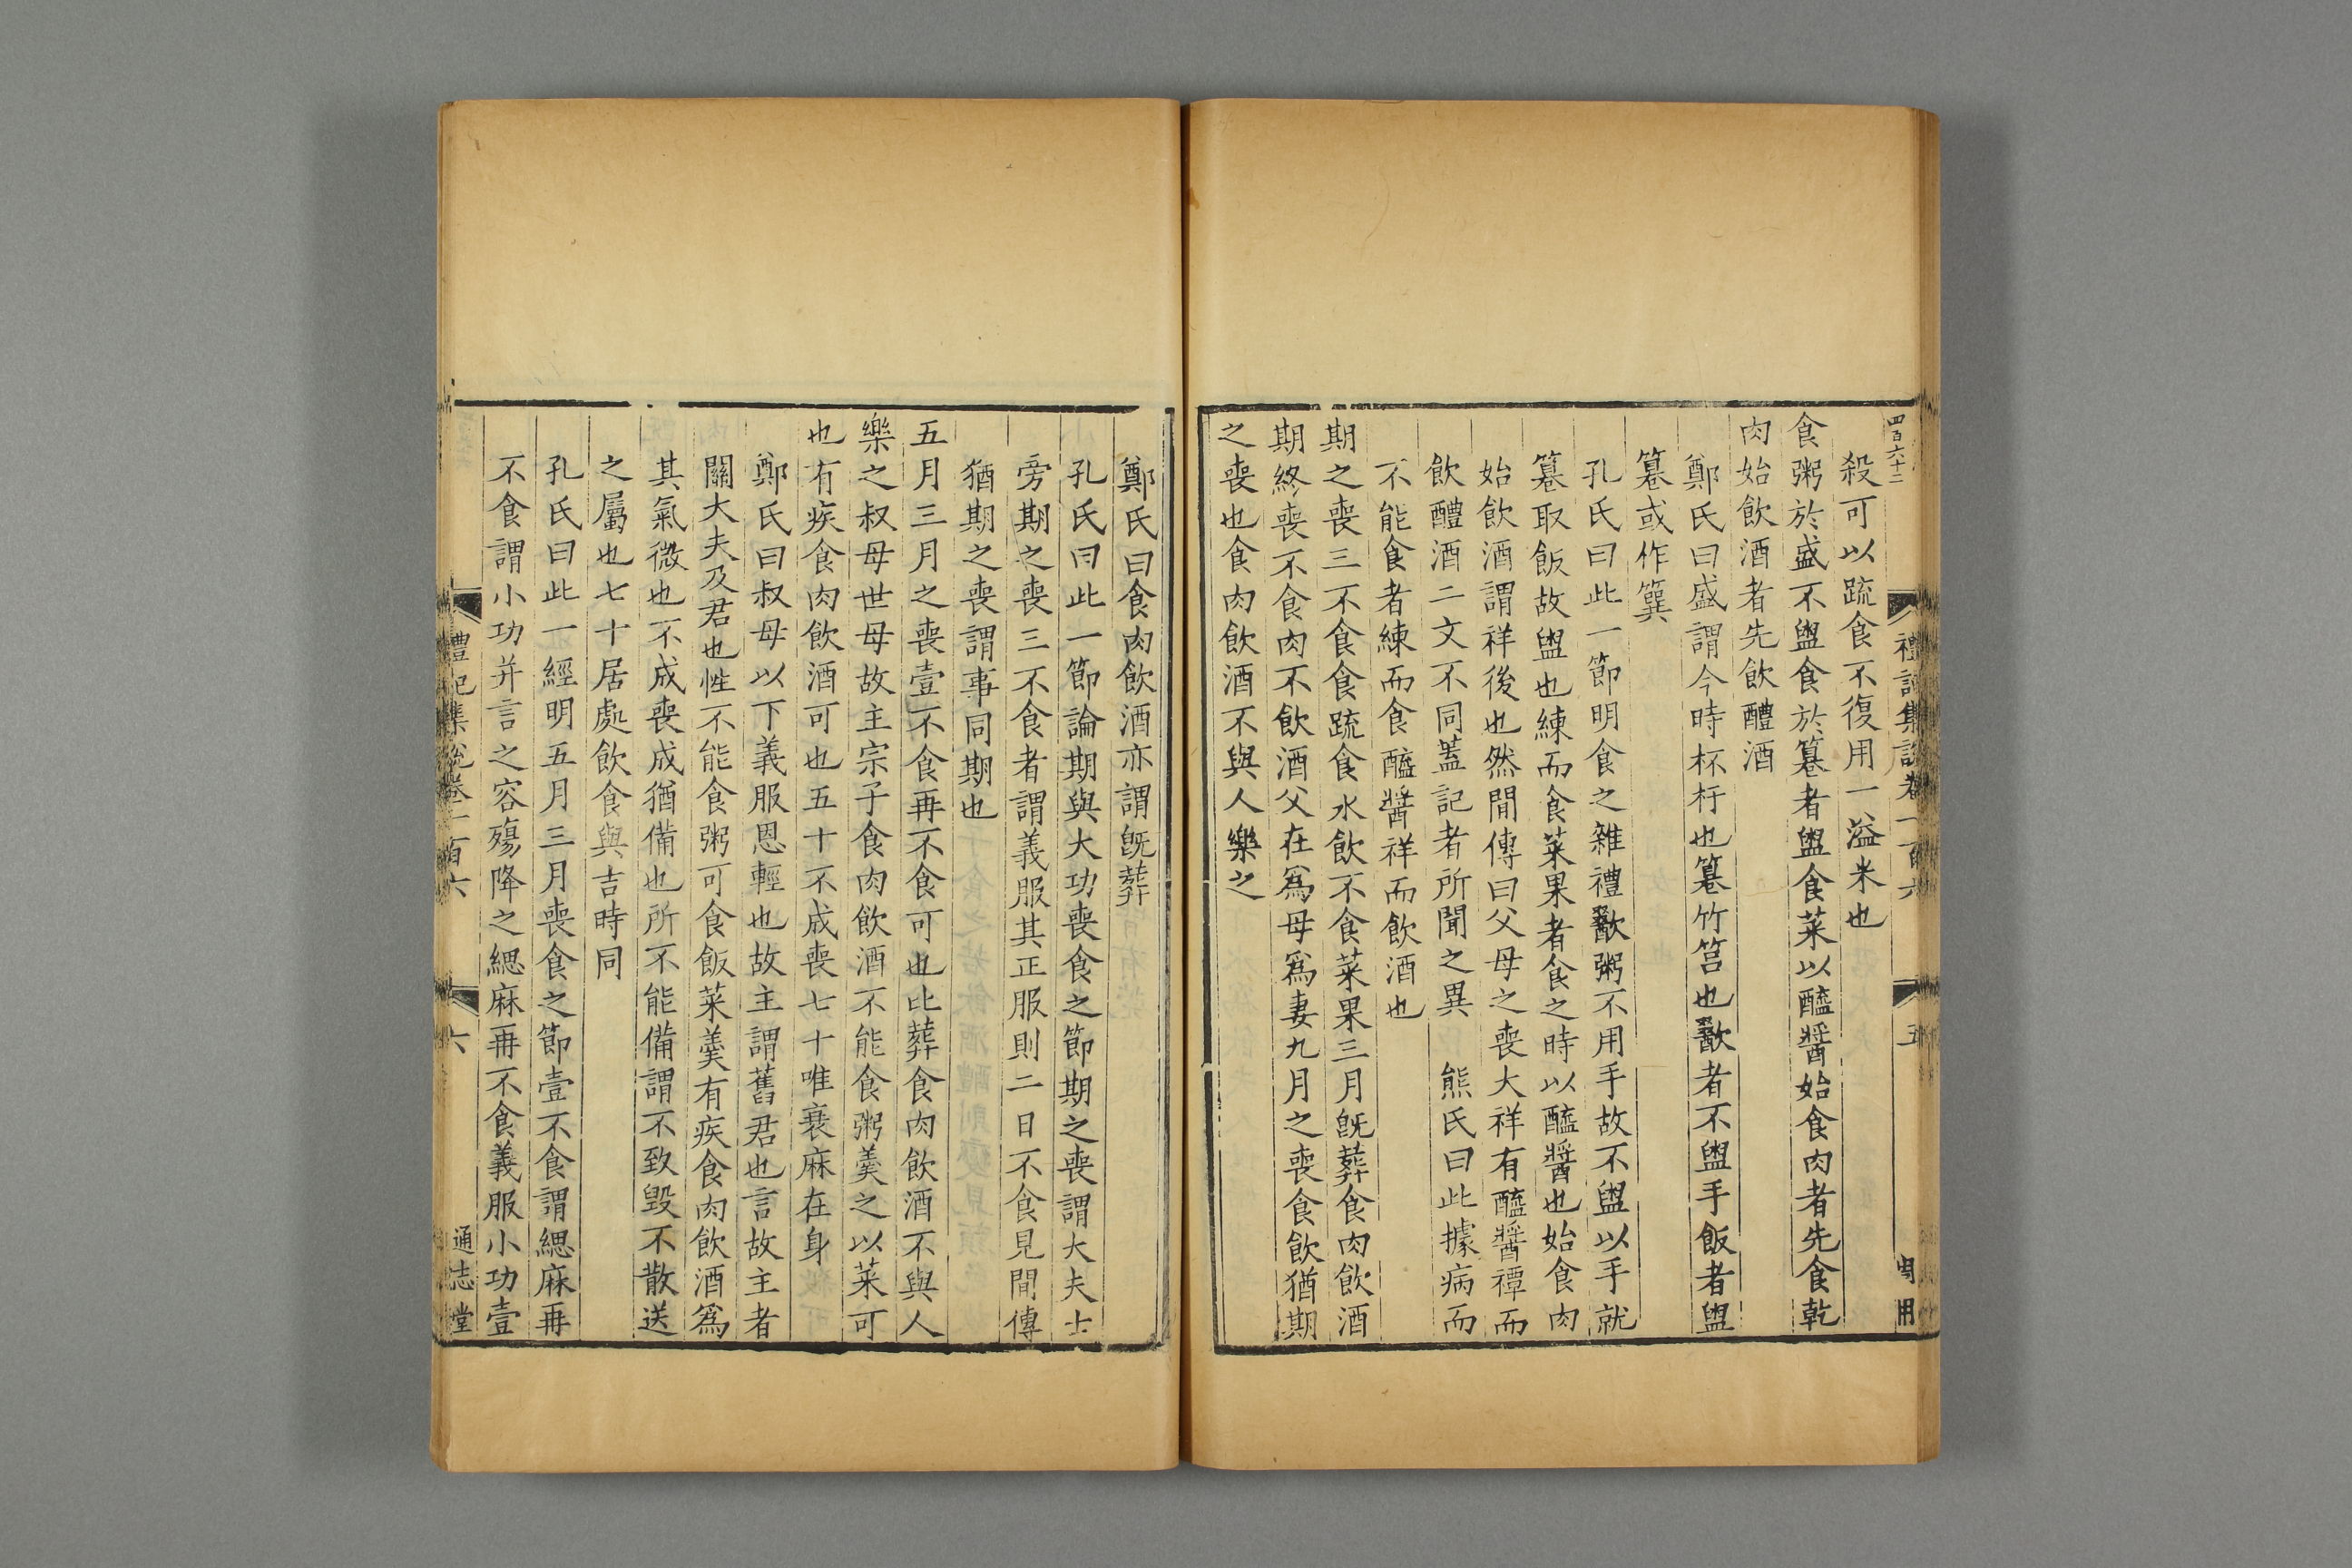 四百六十二
禮記集說卷一百六
五
殺可以疏食不復用一溢米也
食粥於盛不盥食於篹者盥食菜以醯醬始食肉者先食乾
肉始飲酒者先飲醴酒
鄭氏曰盛謂今時杯杅也篹竹筥也歠者不盥手飯者盥
篹或作簨
孔氏曰此一節明食之雜禮歠粥不用手故不盥以手就
篹取飯故盥也練而食菜果者食之時以醯醬也始食肉
始飲酒謂祥後也然閒傳曰父母之喪大祥有醯醬禫而
飲醴酒二文不同蓋記者所聞之異 熊氏曰此據病而
不能食者練而食醯醬祥而飲酒也
期之喪三不食食疏食水飲不食菜果三月既葬食肉飲酒
期終喪不食肉不飲酒父在爲母爲妻九月之喪食飲猶期
之喪也食肉飲酒不與人樂之
鄭氏曰食肉飲酒亦謂既葬
孔氏曰此一節論期與大功喪食之節期之喪謂大夫士
旁期之喪三不食者謂義服其正服則二日不食見閒傳
猶期之喪謂事同期也
五月三月之喪壹不食再不食可也比葬食肉飲酒不與人
樂之叔母世母故主宗子食肉飲酒不能食粥羹之以菜可
也有疾食肉飲酒可也五十不成喪七十唯衰麻在身
鄭氏曰叔母以下義服恩輕也故主謂舊君也言故主者
關大夫及君也性不能食粥可食飯菜羹有疾食肉飲酒爲
其氣微也不成喪成猶備也所不能備謂不致毀不散送
之屬也七十居處飲食與吉時同
孔氏曰此一經明五月三月喪食之節壹不食謂緦麻再
不食謂小功并言之容殤降之緦麻再不食義服小功壹
禮記集說卷一百六
六
通志堂